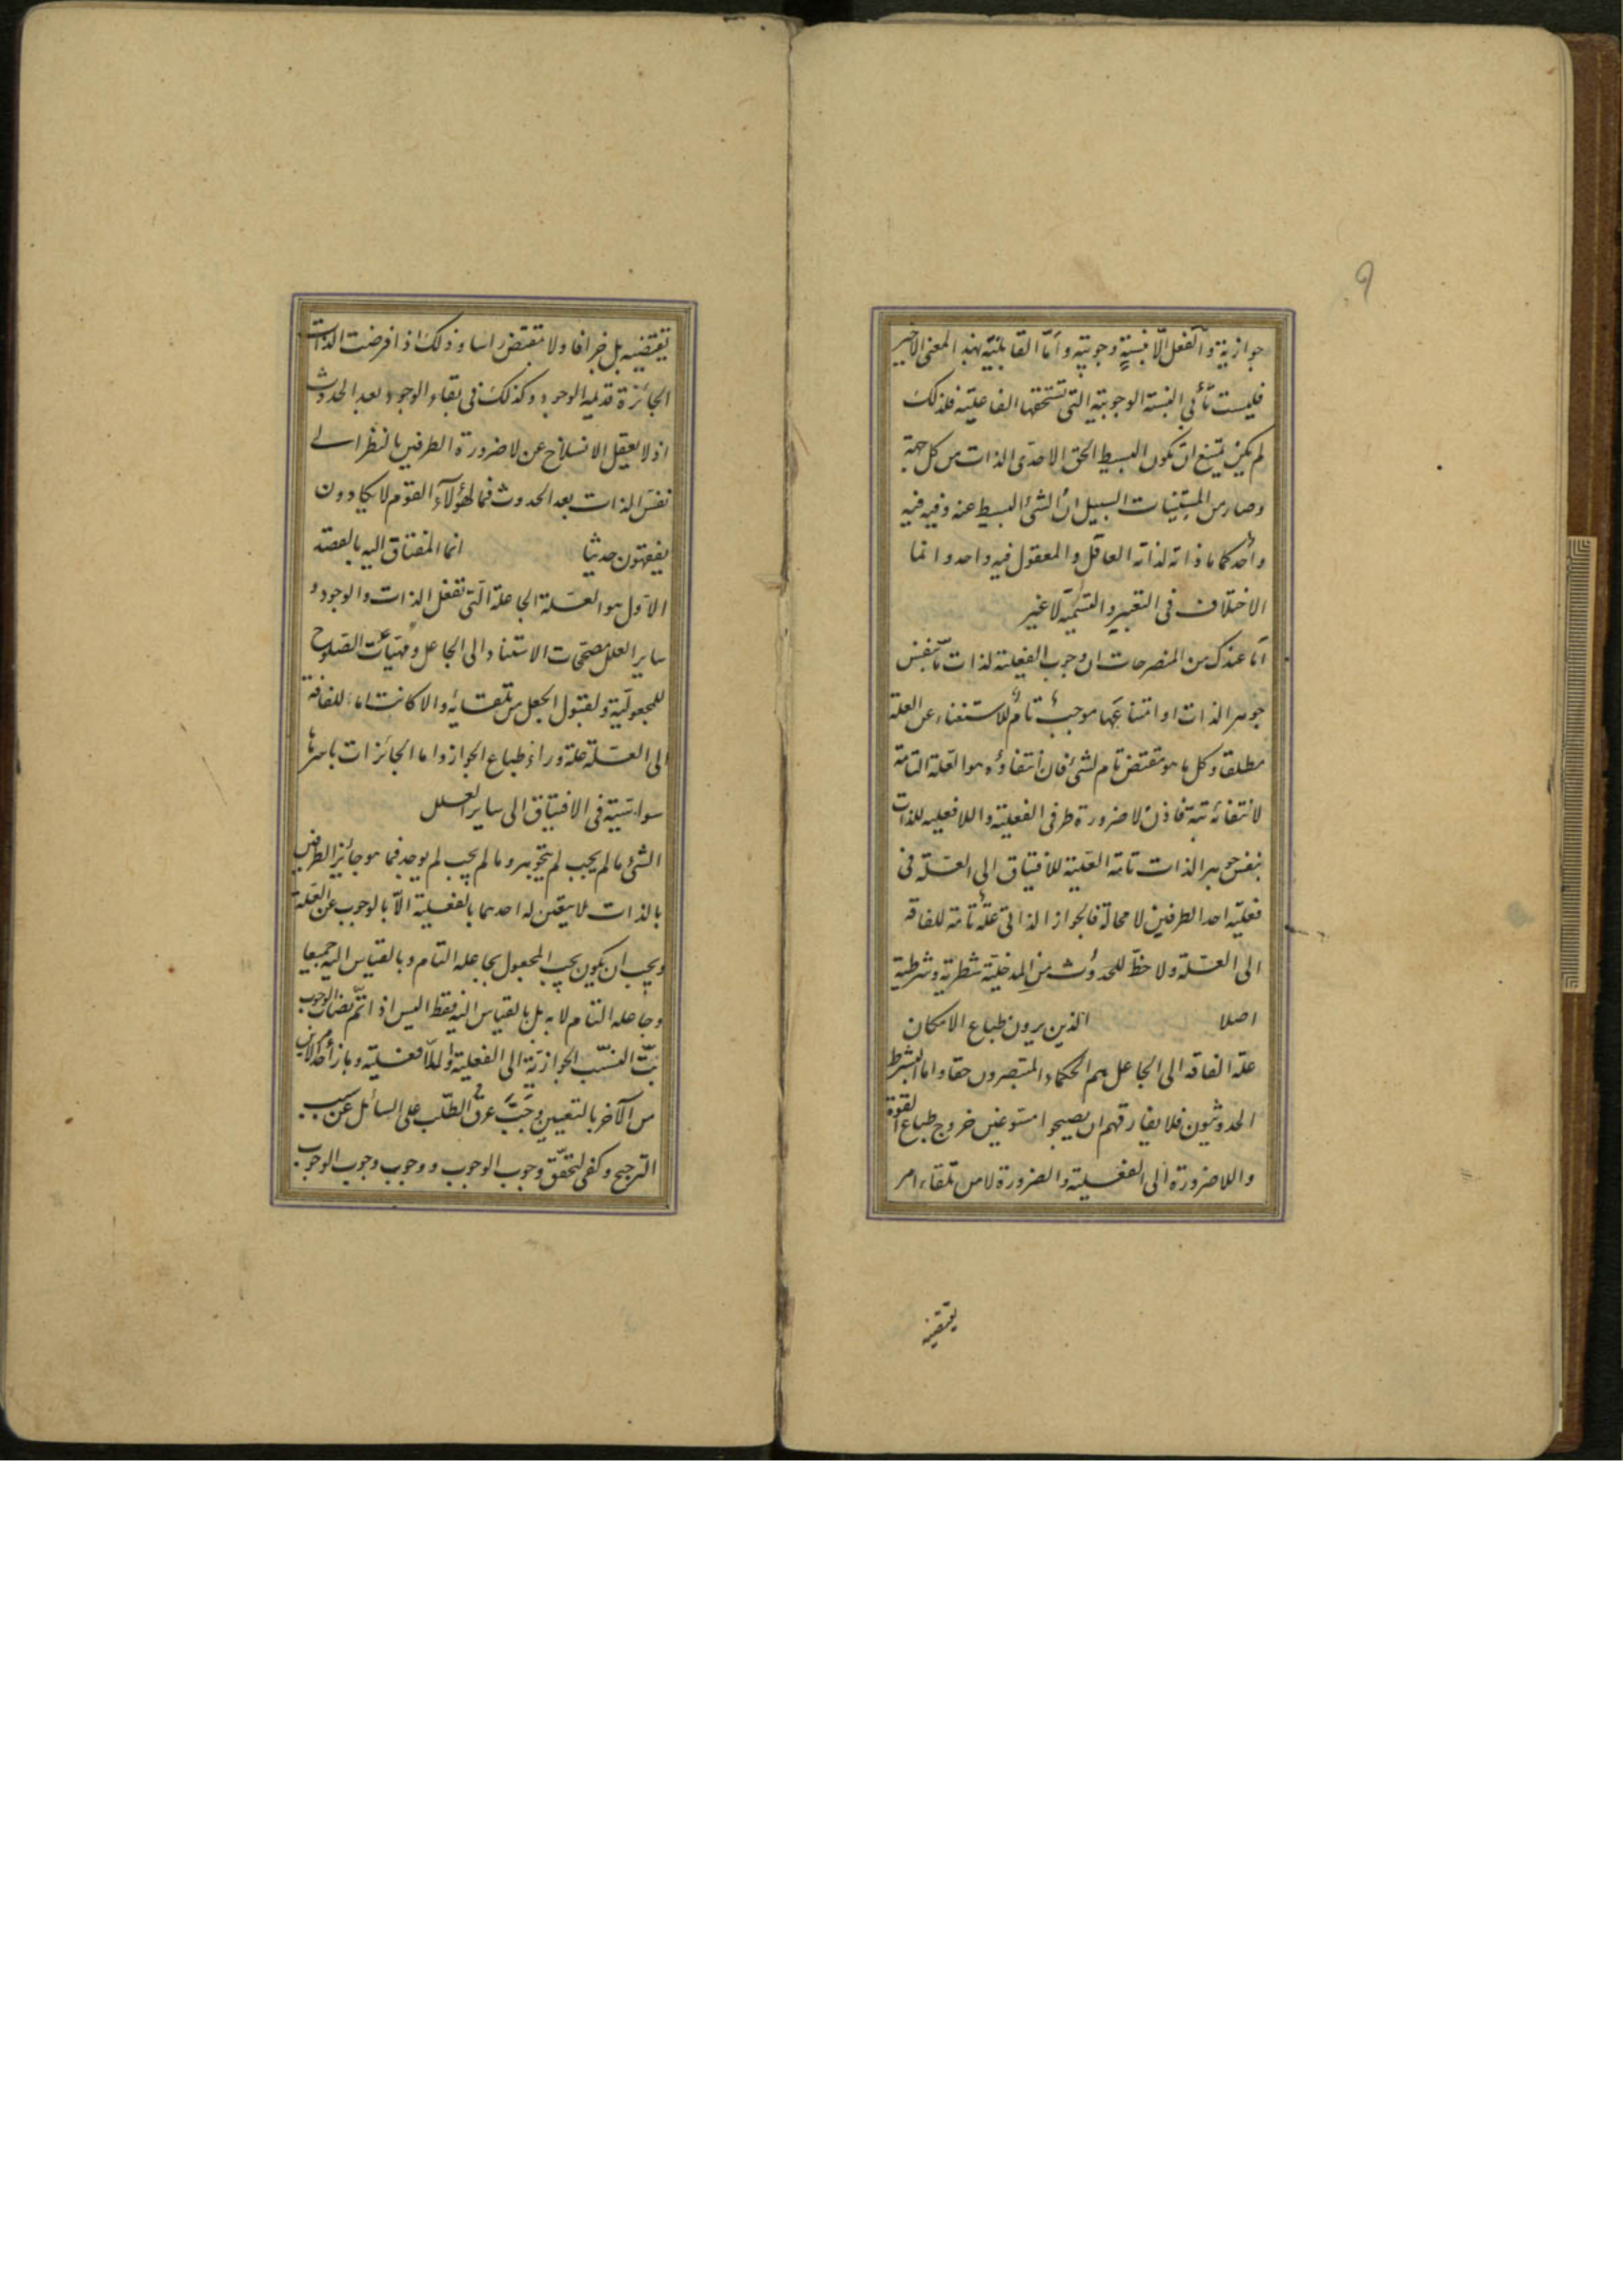 ٩
جوازية والفعل الا بنسبة وجوبية واما القابلية بهذا المعنى الاخير
فليست تأبى النسبة الوجوبية التى تستحقها الفاعلية فلذلك
لم يكن يمتنع ان تكون البسيط الحق الاحدى الذات من كل جهة
وصار من المستبينات السبيل ان الشئ البسيط عنه وفيه فيه
واحد كما ما ذاته لذاته العاقل والمعقول فيه واحد وانما
الاختلاف فى التعبير والتسمية لا غير
اما عندك من المنصرحات ان وجوب الفعلية لذات ما بنفس
جوهر الذات او امتناعها موجب تام للاستغناء عن العلة
مطلقا وكل ما هو مقتض تام لشئ فان انتفاؤه هو العلة التامة
لانتفائه بتة فاذن لا ضرورة طرفى الفعلية واللافعلية للذات
بنفس جوهر الذات تامة العلية للافتياق الى العلة فى
فعلية احد الطرفين لا محالة فالجواز الذاتى علة تامة للفاقة
الى العلة ولا حظ للحدوث من المدخلية شطرية وشرطية
اصلا الذين يرون طباع الامكان
علة الفاقة الى الجاعل هم الحكماء المتبصرون حقا واما الشرط
الحدوثيون فلا يفارقهم ان يصيحوا مسوغين خروج طباع القوة
واللاضرورة الى الفعلية والضرورة لا من تلقاء امر
يقتضيه
يقتضيه بل جزافا ولا مقتض راسا وذلك اذا فرضت الذات
الجائزة قديمة الوجود وكذلك فى بقاء الوجود بعد الحدوث
اذ لا يعقل الانسلاخ عن لا ضرورة الطرفين بالنظر الى
نفس الذات بعد الحدوث فما لهؤلآء القوم لا يكادون
يفقهون حديثا انما المفتاق اليه بالقصد
الاول هو العلة الجاعلة التى تفعل الذات والوجود و
ساير العلل مصححات الاستناد الى الجاعل ومهيئات الصلوح
للمجعولية ولقبول الجعل من تلقائه والا كانت اما للفاقة
الى العلة علة وراء طباع الجواز واما الجائزات باسرها
سواسية فى الافتياق الى ساير العلل
الشئ ما لم يجب لم يتجوهر وما لم يجب لم يوجد فما هو جائز الطرفين
بالذات لا يتعين له احدهما بالفعلية الا بالوجوب عن العلة
ويجب ان يكون يجب المجعول بجاعله التام وبالقياس اليه جميعا
وجاعله التام لا به بل بالقياس اليه فقط اليس اذا تم نصاب الوجوب
بت النسب الجوازية الى الفعلية واللافعلية وباز احد الامرين
من الآخر بالتعيين وجب عرق الطلب على السائل عن سبب
الترجيح وكفى لتحقق وجوب الوجوب ووجوب وجوب الوجوب